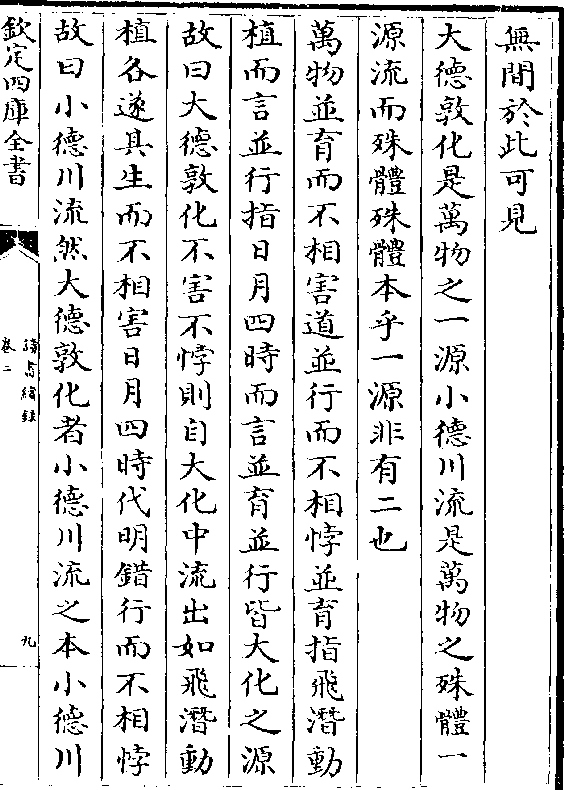 無間於此可見
大德敦化是萬物之一源小德川流是萬物之殊體一
源流而殊體殊體本乎一源非有二也
萬物並育而不相害道並行而不相悖並育指飛潛動
植而言並行指日月四時而言並育並行皆大化之源
故曰大德敦化不害不悖則自大化中流出如飛潛動
植各遂其生而不相害日月四時代明錯行而不相悖
故曰小德川流然大德敦化者小德川流之本小德川
欽定四庫全書
讀書續錄
卷二
九